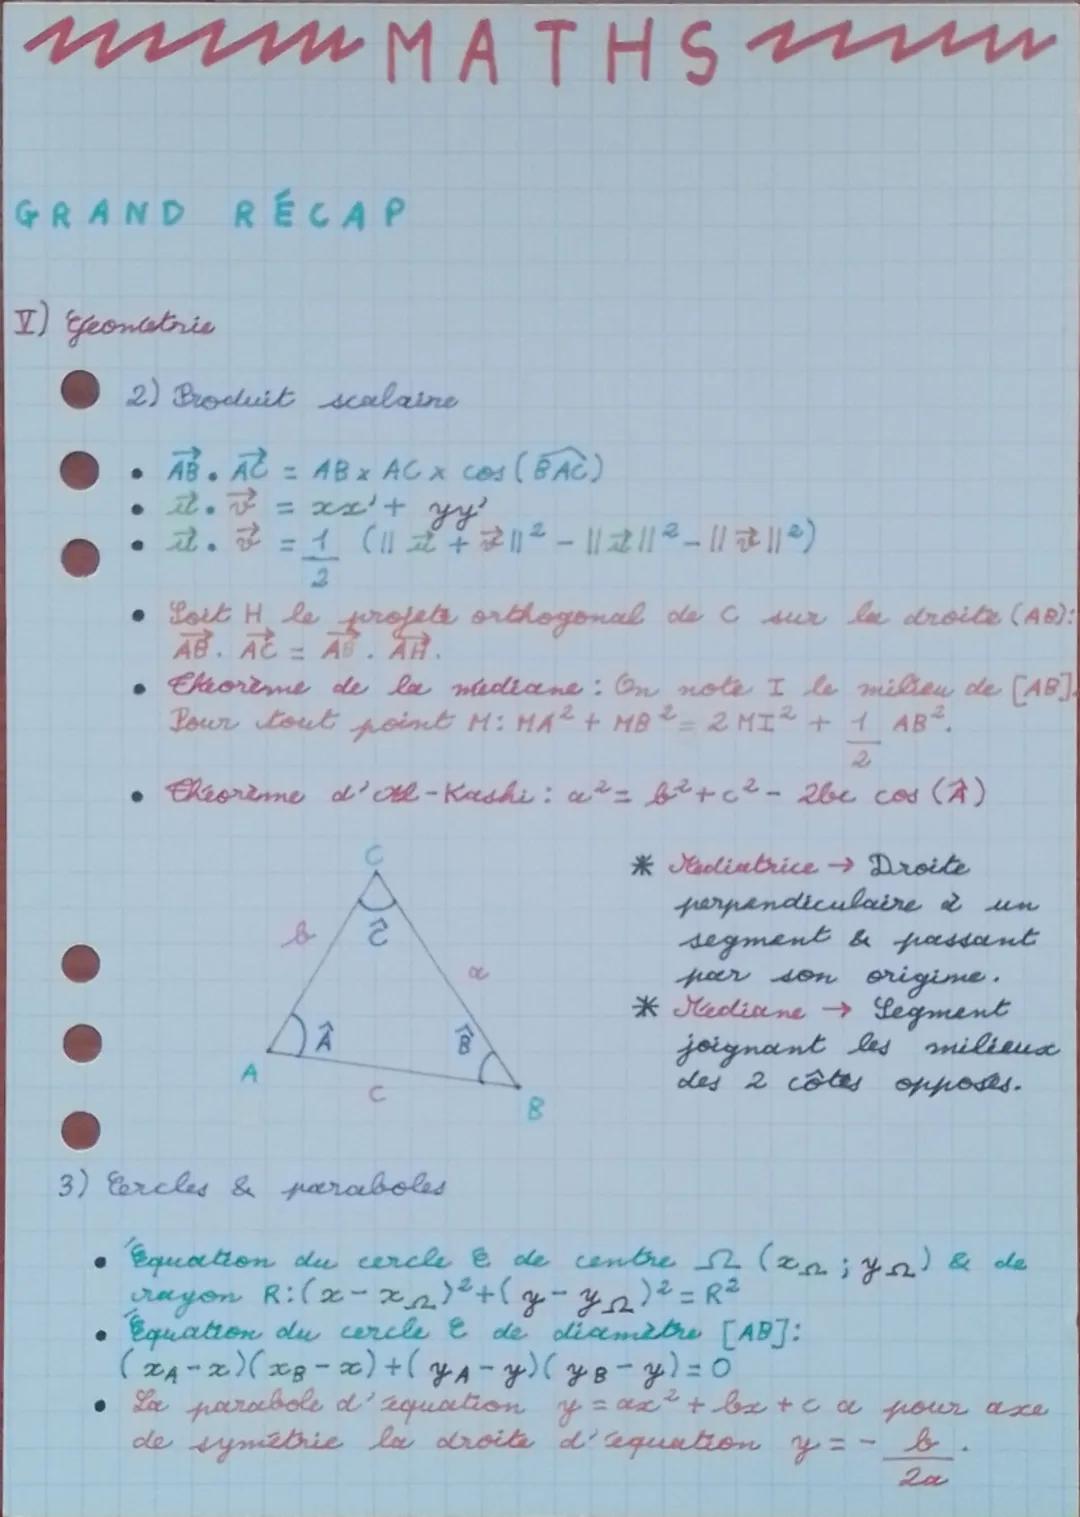 MATHS
GRAND RÉCAP
V) Géométrie
2) Produit scalaire
• AB⃗ . AC⃗ = AB x AC x cos (BAC)
• u⃗ . v⃗ = xx' + yy'
• u⃗ . v⃗ = 1/2 (||u⃗ + v⃗||² - ||u⃗||² - ||v⃗||²)
• Soit H le projeté orthogonal de C sur la droite (AB):
AB⃗ . AC⃗ = AB⃗ . AH⃗.
• Théorème de la médiane : On note I le milieu de [AB].
Pour tout point M: MA² + MB² = 2 MI² + 1/2 AB².
• Théorème d'Al-Kashi : a² = b² + c² - 2bc cos (Â)
C
b
Ĉ
a
Â
B̂
A
c
B
* Médiatrice → Droite
perpendiculaire à un
segment & passant
par son origime.
* Médiane → Segment
joignant les milieux
des 2 côtés opposés.
3) Cercles & paraboles
• Équation du cercle C de centre Ω (xΩ ; yΩ) & de
rayon R: (x - xΩ)² + (y - yΩ)² = R²
• Équation du cercle C de diamètre [AB]:
(xA - x)(xB - x) + (yA - y)(yB - y) = 0
• La parabole d'équation y = ax² + bx + c a pour axe
de symétrie la droite d'équation y = - b/2a.